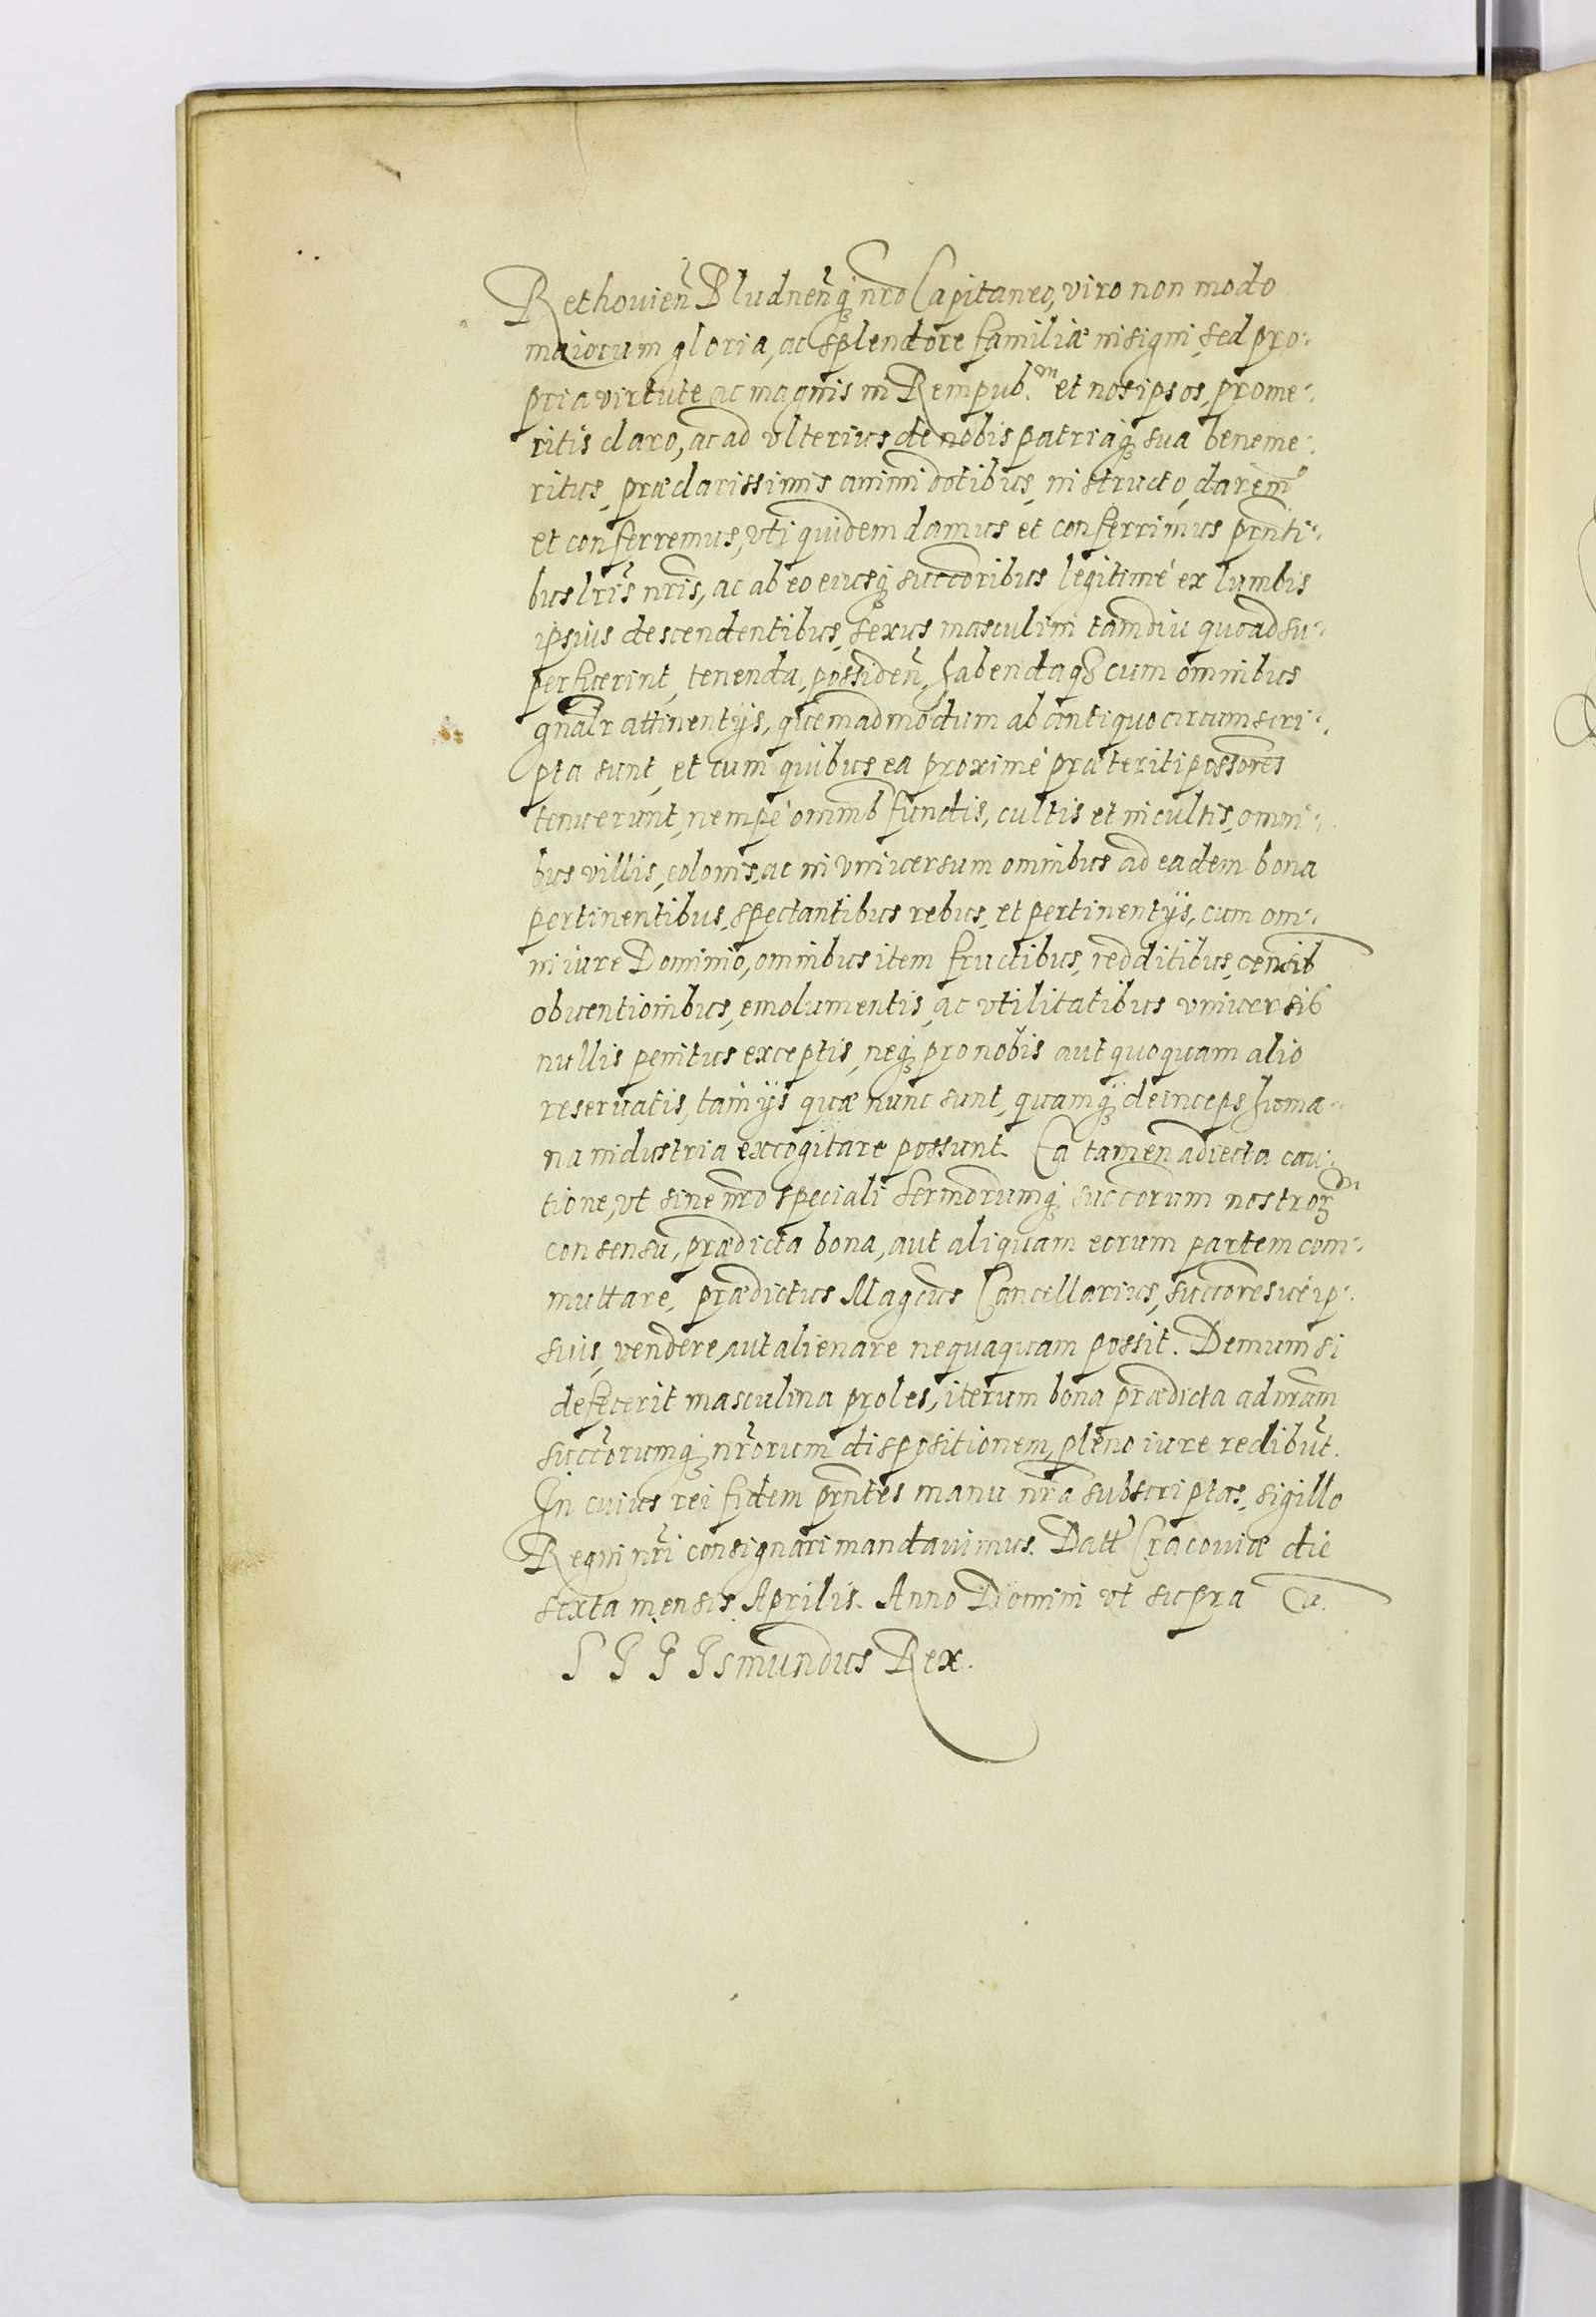 Rethovieñ Bludneñq nro Capitaneo, viro non modo
maiorum gloria, ac splendore familiæ insigni, sed pro:
pria virtute ac magnis in Rempub.m et nos ipsos, prome:
ritis claro, ac ad vlterius de nobis patriaq sua beneme:
ritus, præclarissimis animi dotibus, instructo, darem9
et conferremus, vti quidem damus et conferrimus prnti:
bus lris nris, ac ab eo eiusq succoribus legitimé ex lumbis
ipsius descendentibus, sexus masculini tamdiu quoad su:
perfuerint, tenenda, possideñ, habendaq3 cum omnibus
gnalr attinentijs, quemadmodum ab antiquo circumscri:
pta sunt, et cum quibus ea proximé præteriti possores
tenuerunt, nempé omnib fundis, cultis et incultis, omni:
bus villis, colonis, ac in vniuersum omnibus ad eadem bona
pertinentibus, spectantibus rebus, et pertinentijs, cum om:
ni iure Dominio, omnibus item fructibus, redditibus, censib
obuentionibus, emolumentis, ac vtilitatibus vniuersis
nullis penitus exceptis, neq pro nobis aut quoquam alio
reseruatis, tam ijs quæ nunc sunt, quamq deinceps huma:
na industria excogitare possunt. Ea tamen adiecta cau:
tione, vt sine nro speciali Sermorumq succorum nostroꝝ
consensu, prædicta bona, aut aliquam eorum partem com:
muttare, prædictus Magcus Cancellarius, succoresué ip:
sius, vendere, aut alienare nequaquam possit. Demum si
defecerit masculina proles, iterum bona prædicta ad nram
succorumq nrorum dispositionem, pleno iure redibut.
In cuius rei fidem prntes manu nra subscriptas, sigillo
Regni nri consignari mandauimus. Datt Cracoviæ die
sexta mensis Aprilis. Anno Domini vt supra
SIGIsmundus Rex.